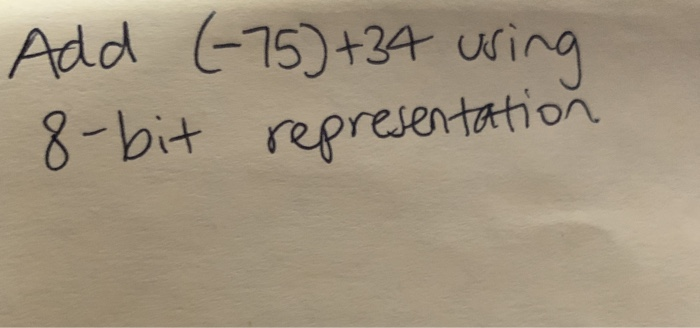 Add (-75)+34 using
8-bit representation